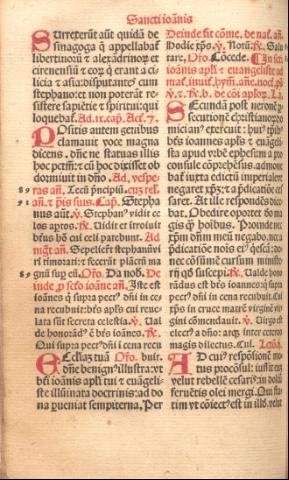 Sancti ioānis
Surrexerūt aūt quidā de
sinagoga q̄ appellabaꞇ̄
libertinorū ⁊ alexādrinoꝝ et
cirenensiū ⁊ eoꝝ q̄ erant a ci
licia ⁊ asia: disputantes cum
stephano: et non poterāt re
sistere sapiētie ⁊ spiritui: qui
loquebaꞇ̄. Ad .ix. capł. Act. 7.
Positis autem genibus
clamauit voce magna
dicens. dn̄e ne statuas illis
hoc pctm̄: ⁊ cū hoc dixisset ob
dormiuit in dn̄o. Ad vespe-
ras
Stepha
nus aūt. ꝟ. Stephanꝰ vidit ce
los aptos. ꝶ. Uidit et introiuit
btūs hō cui celi patebant. Ad
Sepelierūt stephanū vi
ri timorati: ⁊ fecerūt planctū ma
gnū sup eū. Oꝛo. Da nob. De
inde ꝓ scō ioāne añ. Iste est
ioānes q̄ supra pectꝰ dn̄i in ce
na recubuit: btūs apłs cui reue-
lata sūt secreta celestia. ꝟ. Ualde
de honorādꝰ ē btūs ioānes. ꝶ.
Qui supra pectꝰ dn̄i i cena recu
Ecclīaꝫ tuā Oꝛo. buit.
dn̄e benignꝰ illustra: vt
btī ioānis apłi tui ⁊ euāgeli-
ste illūinata doctrinis: ad do
na ꝑueniat sempiterna. Per
Deinde fit cōme. de nat. añ.
Hodie xp̄s. ꝟ. Notū. ꝶ. Salu
tare, Oꝛo. Cōcede.
ioānis apłi ⁊ euangeliste ad

Secunda post neronē ꝑ
secutionē christianoꝝ do
mician⁹ exercuit:
btūs ioannes apłs ⁊ euāgeli
sta apud vrbē ephesum a pro
consule cōprehēsus, admone
baꞇ̄ iuxta edictū imperialem
negaret xp̄ꝫ: ⁊ a p̄dicatiōe ces
saret. At ille respondēs dice
bat. Obedire oportet deo ma
gis q̄ hoībus. Proinde ne
xp̄m dn̄m meū negabo, nec a
p̄dicatiōe nois eiꝰ
nec cōsūmē cursum minister
rij qd̄ suscepi. ꝶ. Ualde hono
rādus est btūs ioannes: q̄ supra
pectꝰ dn̄i in cena recubuit. Cui
xp̄s in cruce matrē virginē vir
gini cōmendauit. ꝟ. Uirgo est
electꝰ a dn̄o: atqꝫ inter ceteros
magis dilectus. Cui. Lectō
Ad cuiꝰ respōsionē mo
tus procōsul: iussit eū
velut rebellē cesaris: in doliū
feruētis olei mergi. Qui sta
tim vt cōiectꝰ est in illd̄: velut